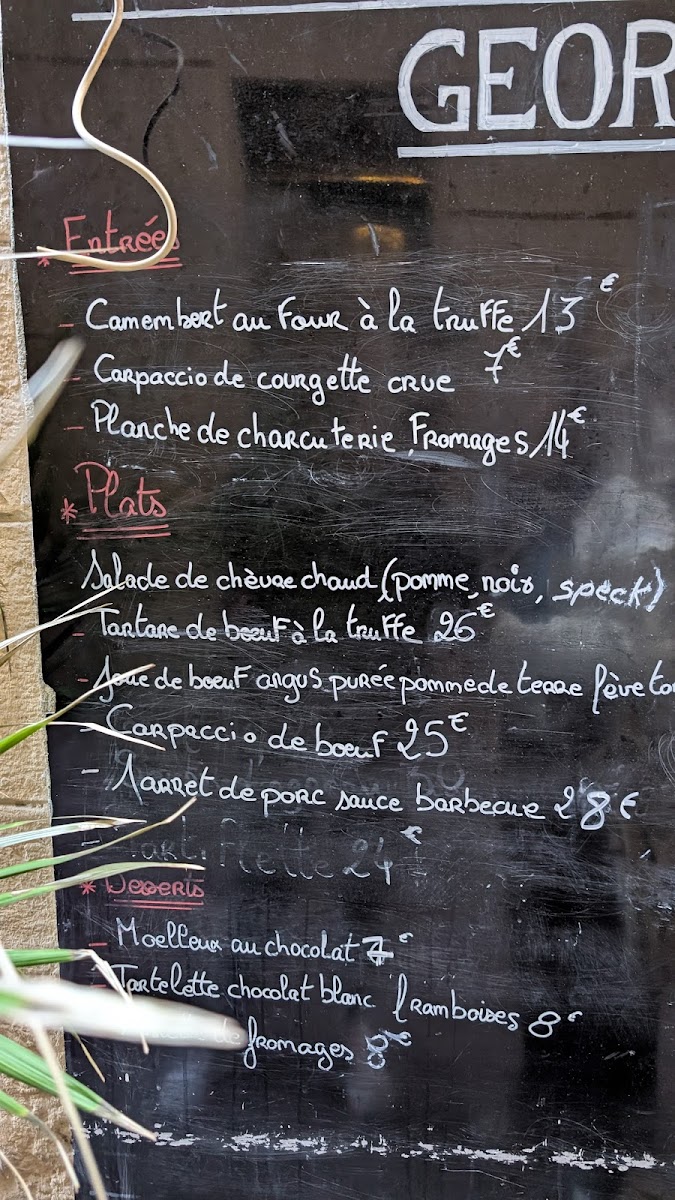 GEOR
* Entrées
- Camembert au four à la truffe 13€
- Carpaccio de courgette crue 7€
- Planche de charcuterie, Fromages 14€
* Plats
Salade de chèvre chaud (pomme, noix, speck)
- Tartare de boeuf à la truffe 26€
- Joue de boeuf angus purée pomme de terre fève ton
- Carpaccio de boeuf 25€
- Jarret de porc sauce barbecue 28€
- 24€
* Desserts
- Moelleux au chocolat 7€
- Tartelette chocolat blanc framboises 8€
de fromages 8€